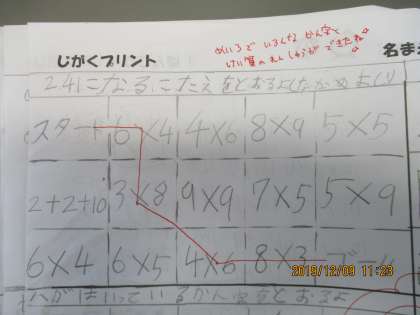 めいろで いろんなかん字と
けい算のれんしゅうができたね
じがくプリント
名ま
24になるこたえをとおる
スタート 6×4 4×6 8×9 5×5
2+2+10 3×8 9×9 7×5 5×9
6×4 6×5 4×6 8×3 ゴール
2019/12/09 11:23
がはいっているかん字をとおるよ